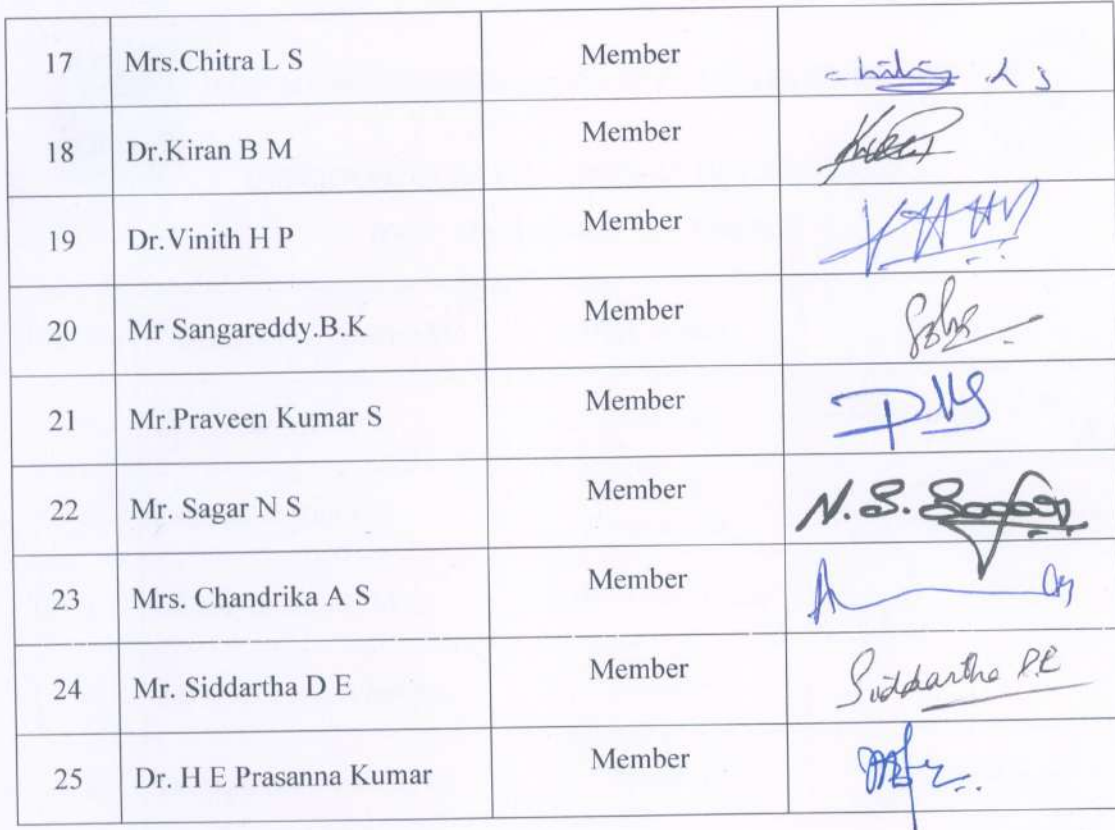 17 Mrs.Chitra L S Member Chitra L S
18 Dr.Kiran B M Member
19 Dr.Vinith H P Member
20 Mr Sangareddy.B.K Member
21 Mr.Praveen Kumar S Member
22 Mr. Sagar N S Member N.S. Sagar
23 Mrs. Chandrika A S Member
24 Mr. Siddartha D E Member Siddartha D.E
25 Dr. H E Prasanna Kumar Member